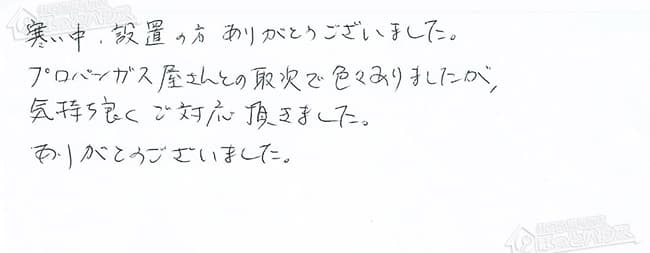 寒い中、設置の方 ありがとうございました。
プロパンガス屋さんとの取次で色々ありましたが、
気持ち良くご対応頂きました。
ありがとうございました。